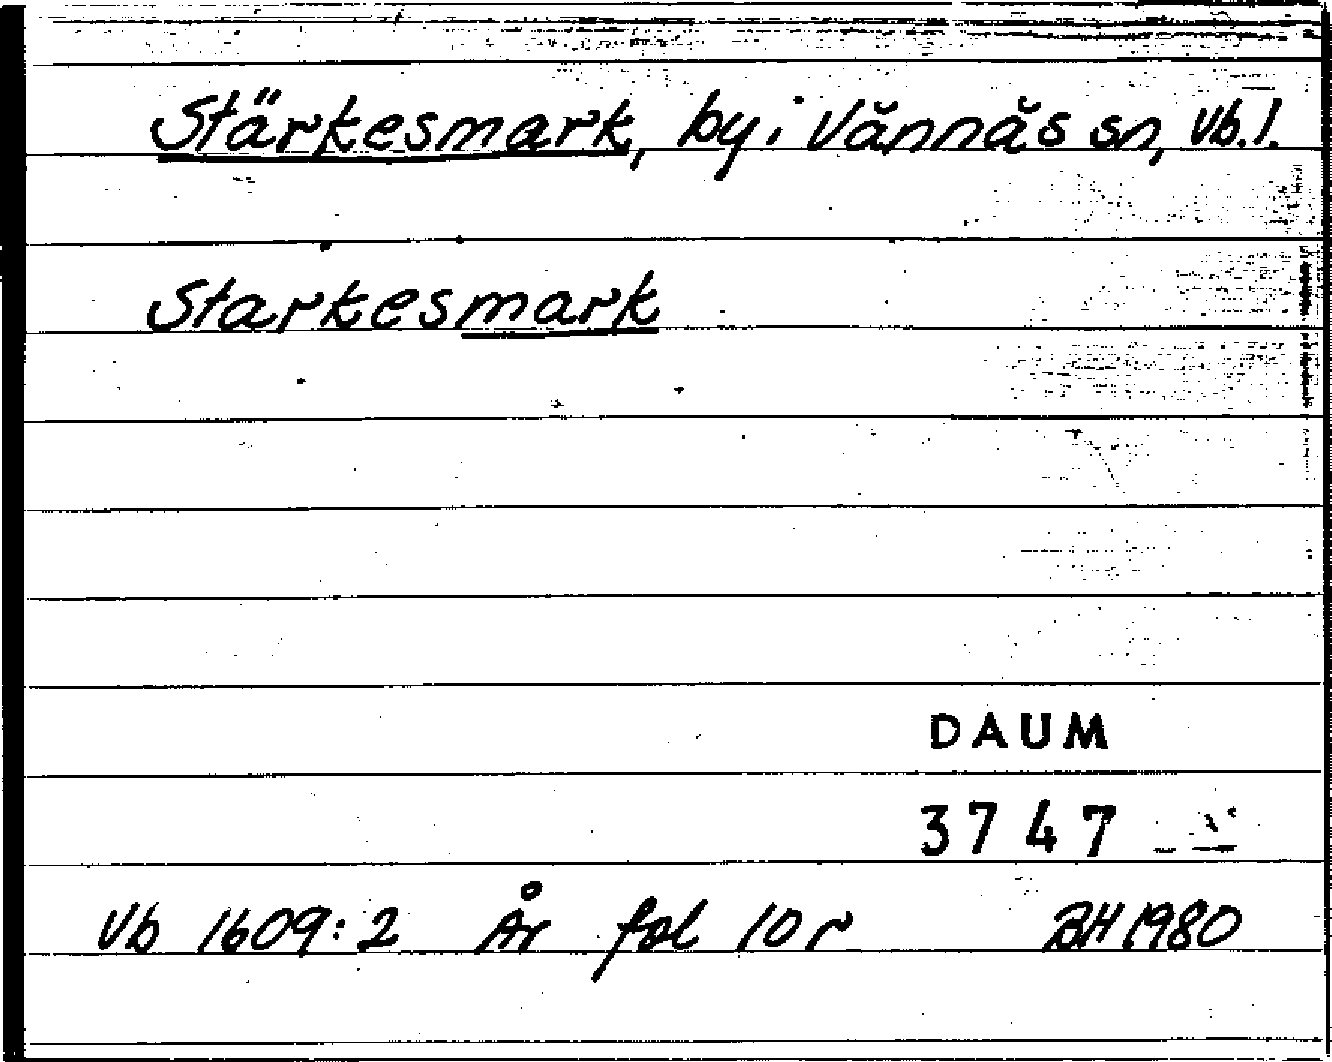 Stärkesmark, by i Vännäs sn, Vb.l.
Starkesmark
DAUM
3747
Vb 1609:2 År fol 10 r BH 1980